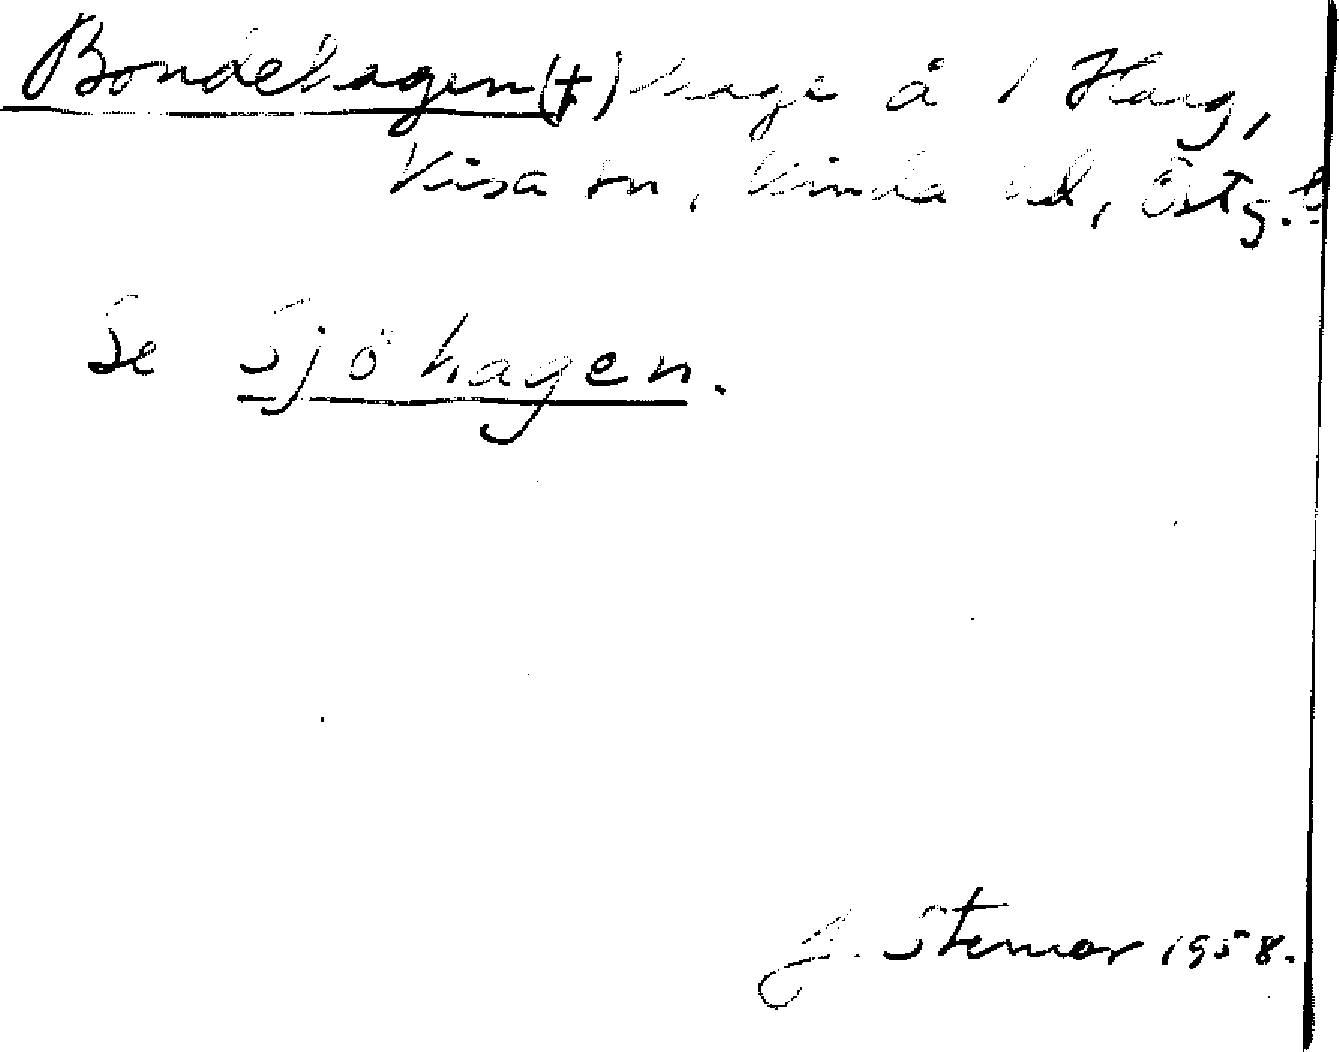 Bondehagen (†) hage å 1 Harg,
Visa sn, Kinda hd, Östg.
Se Sjöhagen.
J. Stemor 1958.